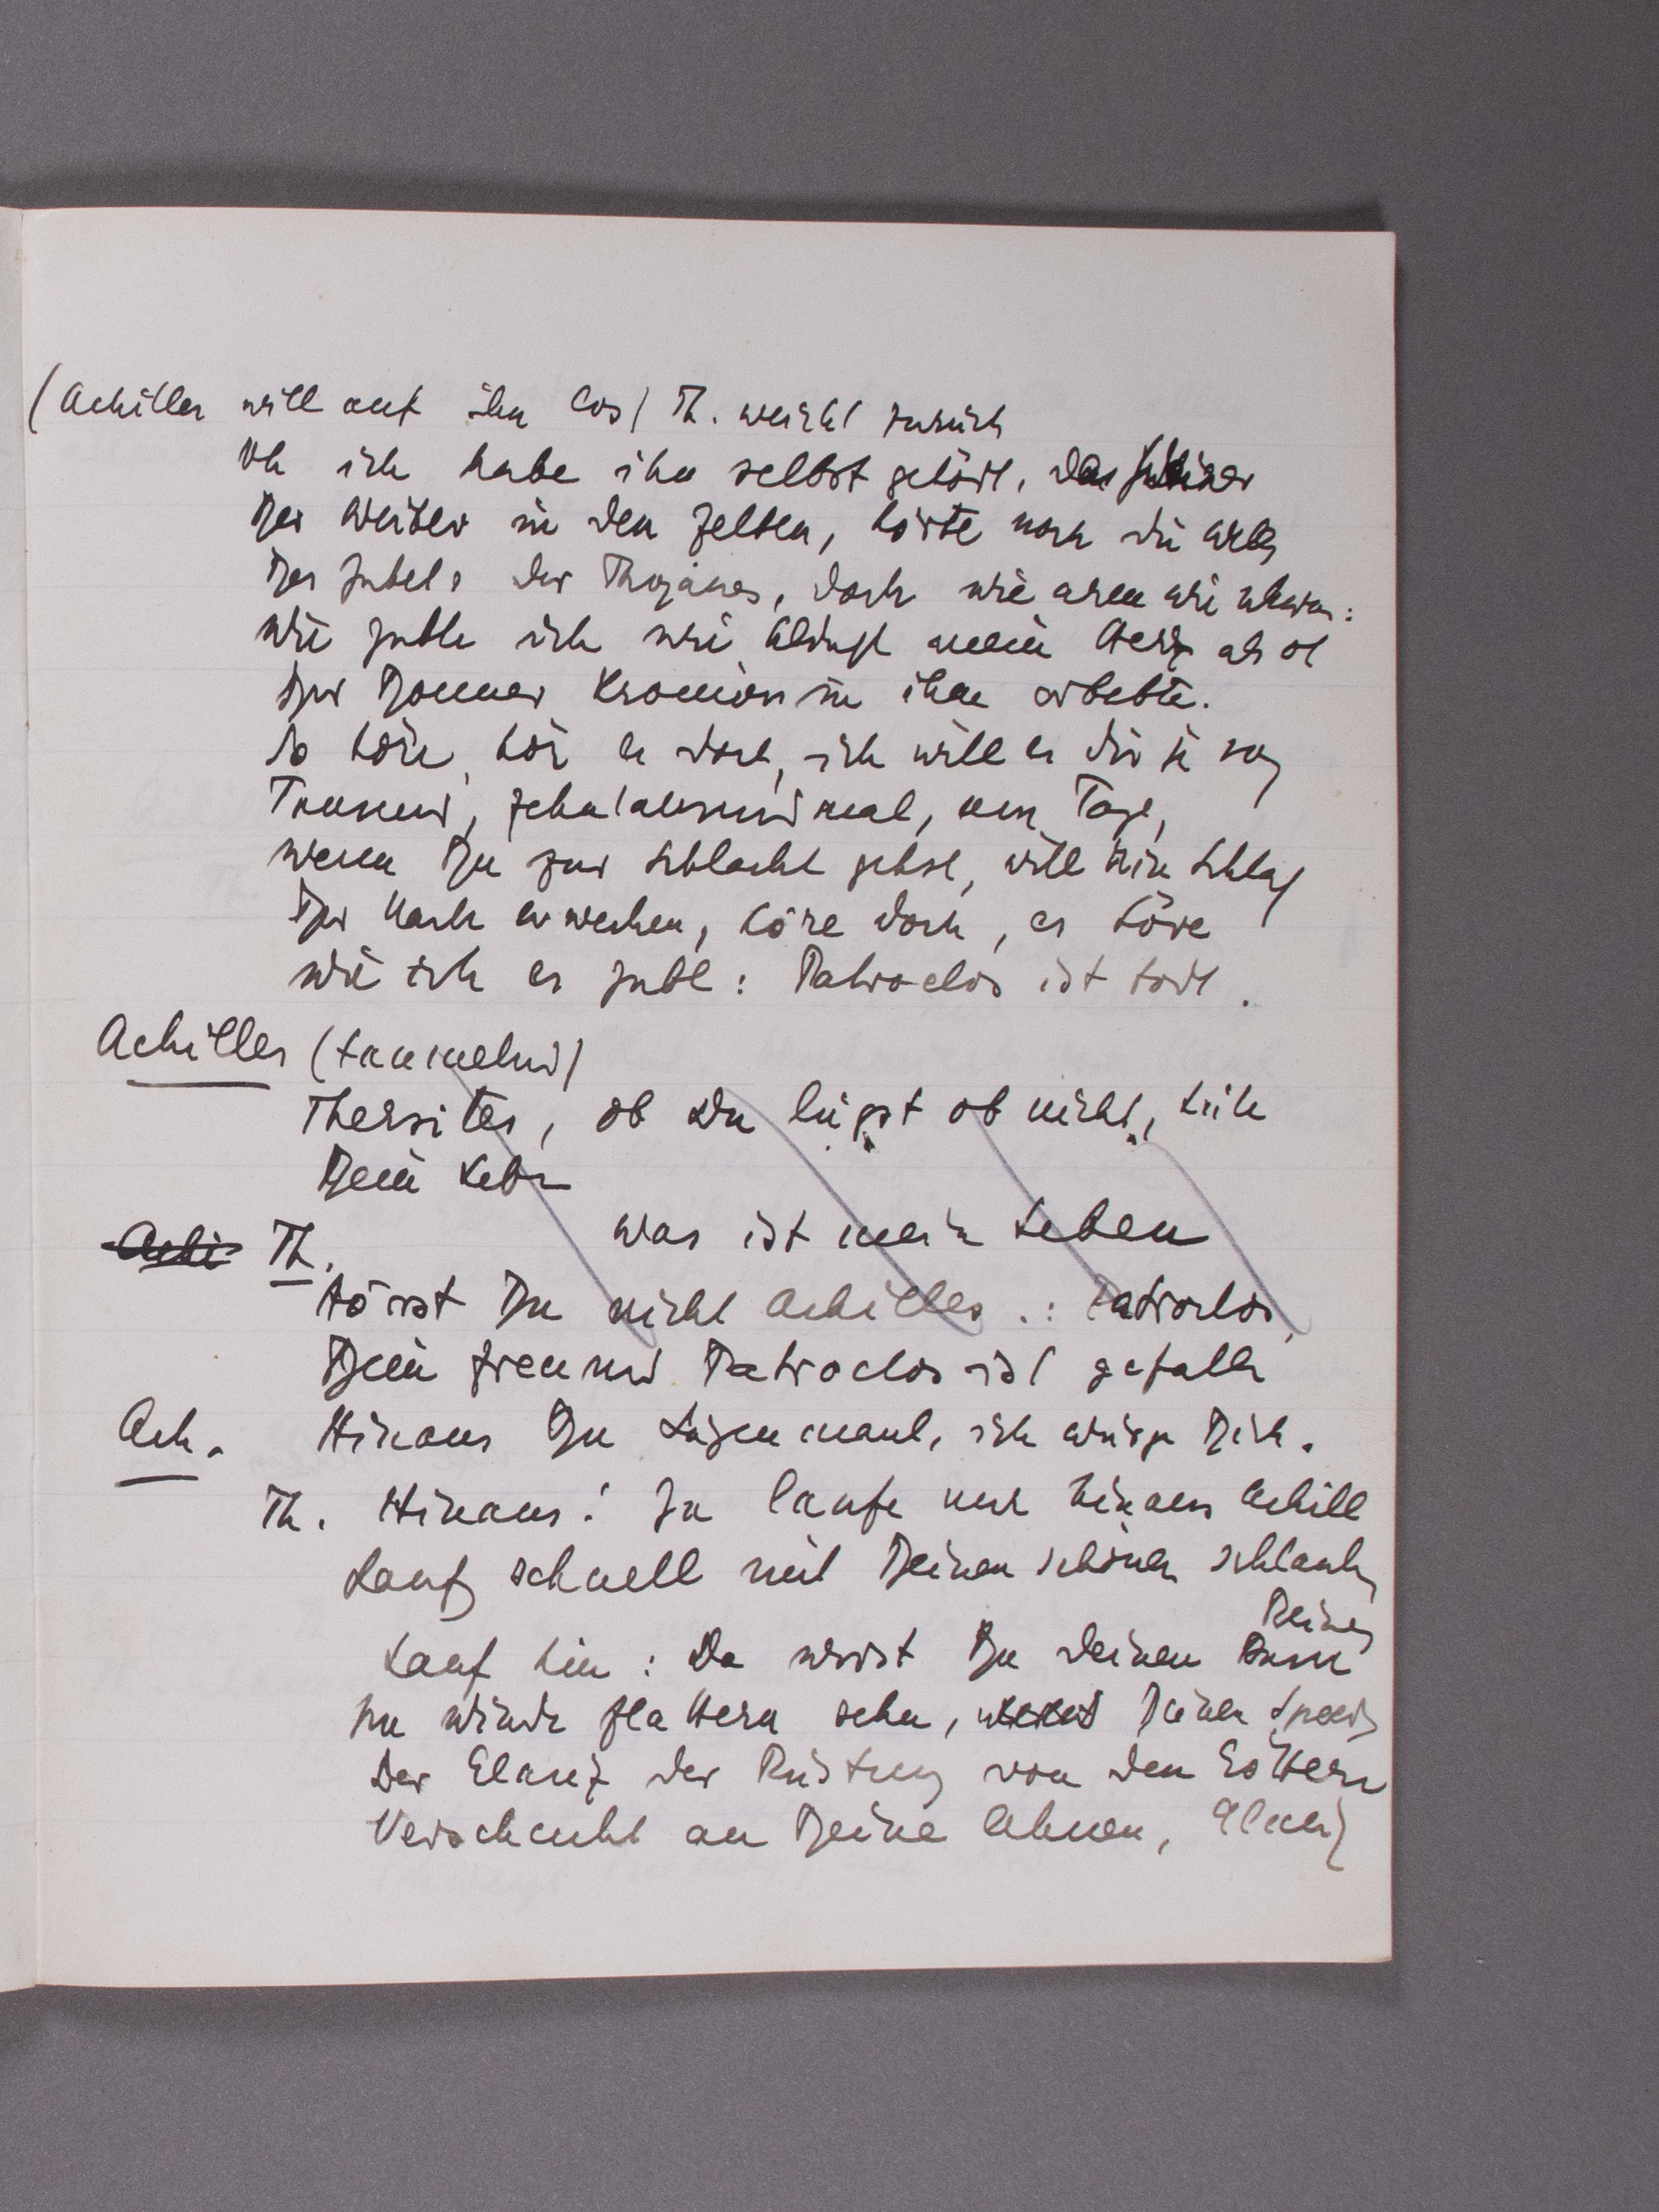 (Achilles will auf ihn los) Th. weicht zurück
Oh ich habe ihn selbst gehört, das
Der Weiber in den Zelten, hörte noch die
Des Jubels der Trojaner, doch wie arm wie
Wie juble ich wie klingt mein Herz als ob
Der Donner Kronions in ihm erbebte.
So höre, hör es doch, ich will es dir
Tausend, zehntausendmal, am Tage,
wenn Du zur Schlacht gehst, will Dein Schlaf
Der Nacht erwecken, höre doch, es höre
wie ich es juble: Patroclos ist todt.
Achilles (taumelnd)
Thersites, ob Du lügst ob nicht, hüte
Dein Leben
Achi Th. Was ist mein Leben
Hörst Du nicht Achilles.: Patroclos,
Dein Freund Patroclos ist gefallen
Ach. Hinaus Du Lügenmaul, ich würge Dich.
Th. Hinaus! Ja laufe nur hinaus Achill
Lauf schnell mit Deinen schönen schlanken
Deinen
Lauf hin: Da wirst Du deinen
Im Winde flattern sehn, Deinen Speer
Der Glanz der Rüstung von den Göttern
Verschenkt an Deine Ahnen, Glanz